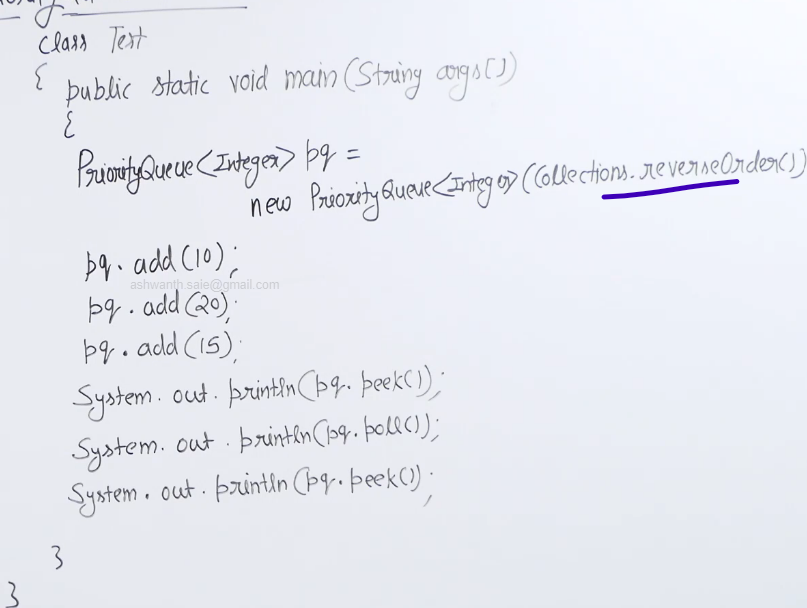 class Test
{ public static void main(String args[])
{
PriorityQueue<Integer> pq =
new PriorityQueue<Integer>(Collections.reverseOrder())
pq.add(10);
ashwanth.sale@gmail.com
pq.add(20);
pq.add(15);
System.out.println(pq.peek());
System.out.println(pq.poll());
System.out.println(pq.peek());
}
}